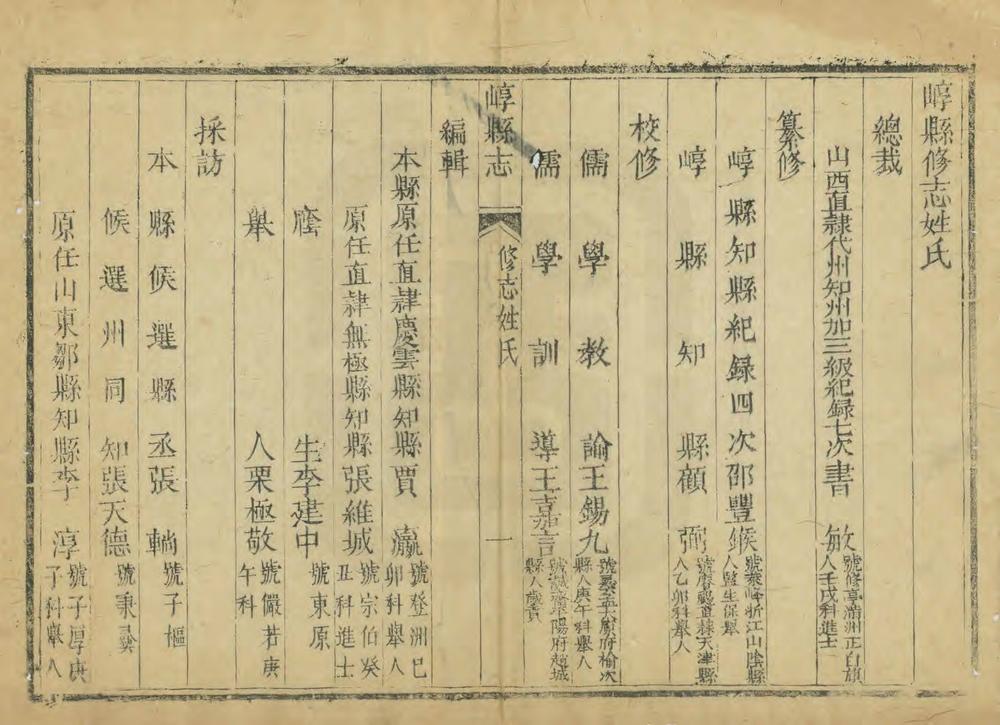 崞縣修志姓氏
總裁
山西直隸代州知州加三級紀録七次書 敏 號修亭滿洲正白旗人壬戌科進士
纂修
崞縣知縣紀録四次邵豐鍭 號泰峰浙江山陰縣人監生保舉
崞縣知縣顧 弼 直隸天津縣人乙卯科舉人
校修
儒學教諭王錫九 太原府榆次縣人庚午科舉人
儒學訓導王嘉言 平陽府趙城縣人歲貢
崞縣志 修志姓氏 一
編輯
本縣原任直隸慶雲縣知縣賈 瀛 號登洲己卯科舉人
原任直隸無極縣知縣張維城 號宗伯癸丑科進士
廕生李建中 號東原
舉人栗極敬 號儼若庚午科
採訪
本縣候選縣丞張 輈 號子樞
候選州同知張天德 號秉彞
原任山東鄒縣知縣李 淳 號子厚庚子科舉人